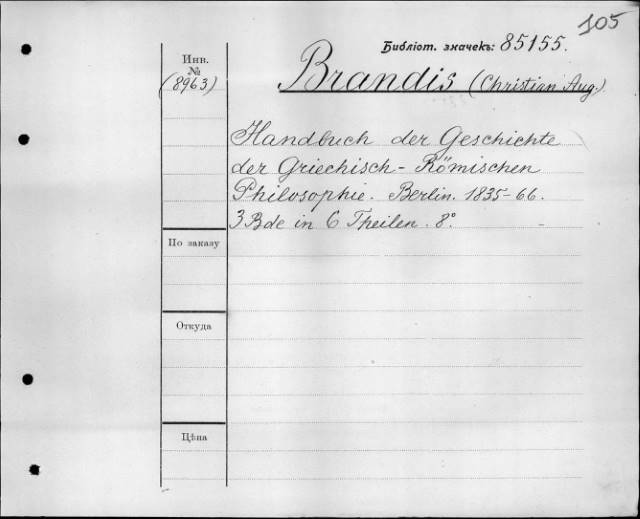 105
Библіот. значекъ: 85155.
Инв.
№
(8963)
Brandis (Christian Aug.)
Handbuch der Geschichte
der Griechisch-Römischen
Philosophie. Berlin. 1835-66.
3 Bde in 6 Theilen. 8°
По заказу
Откуда
Цѣна